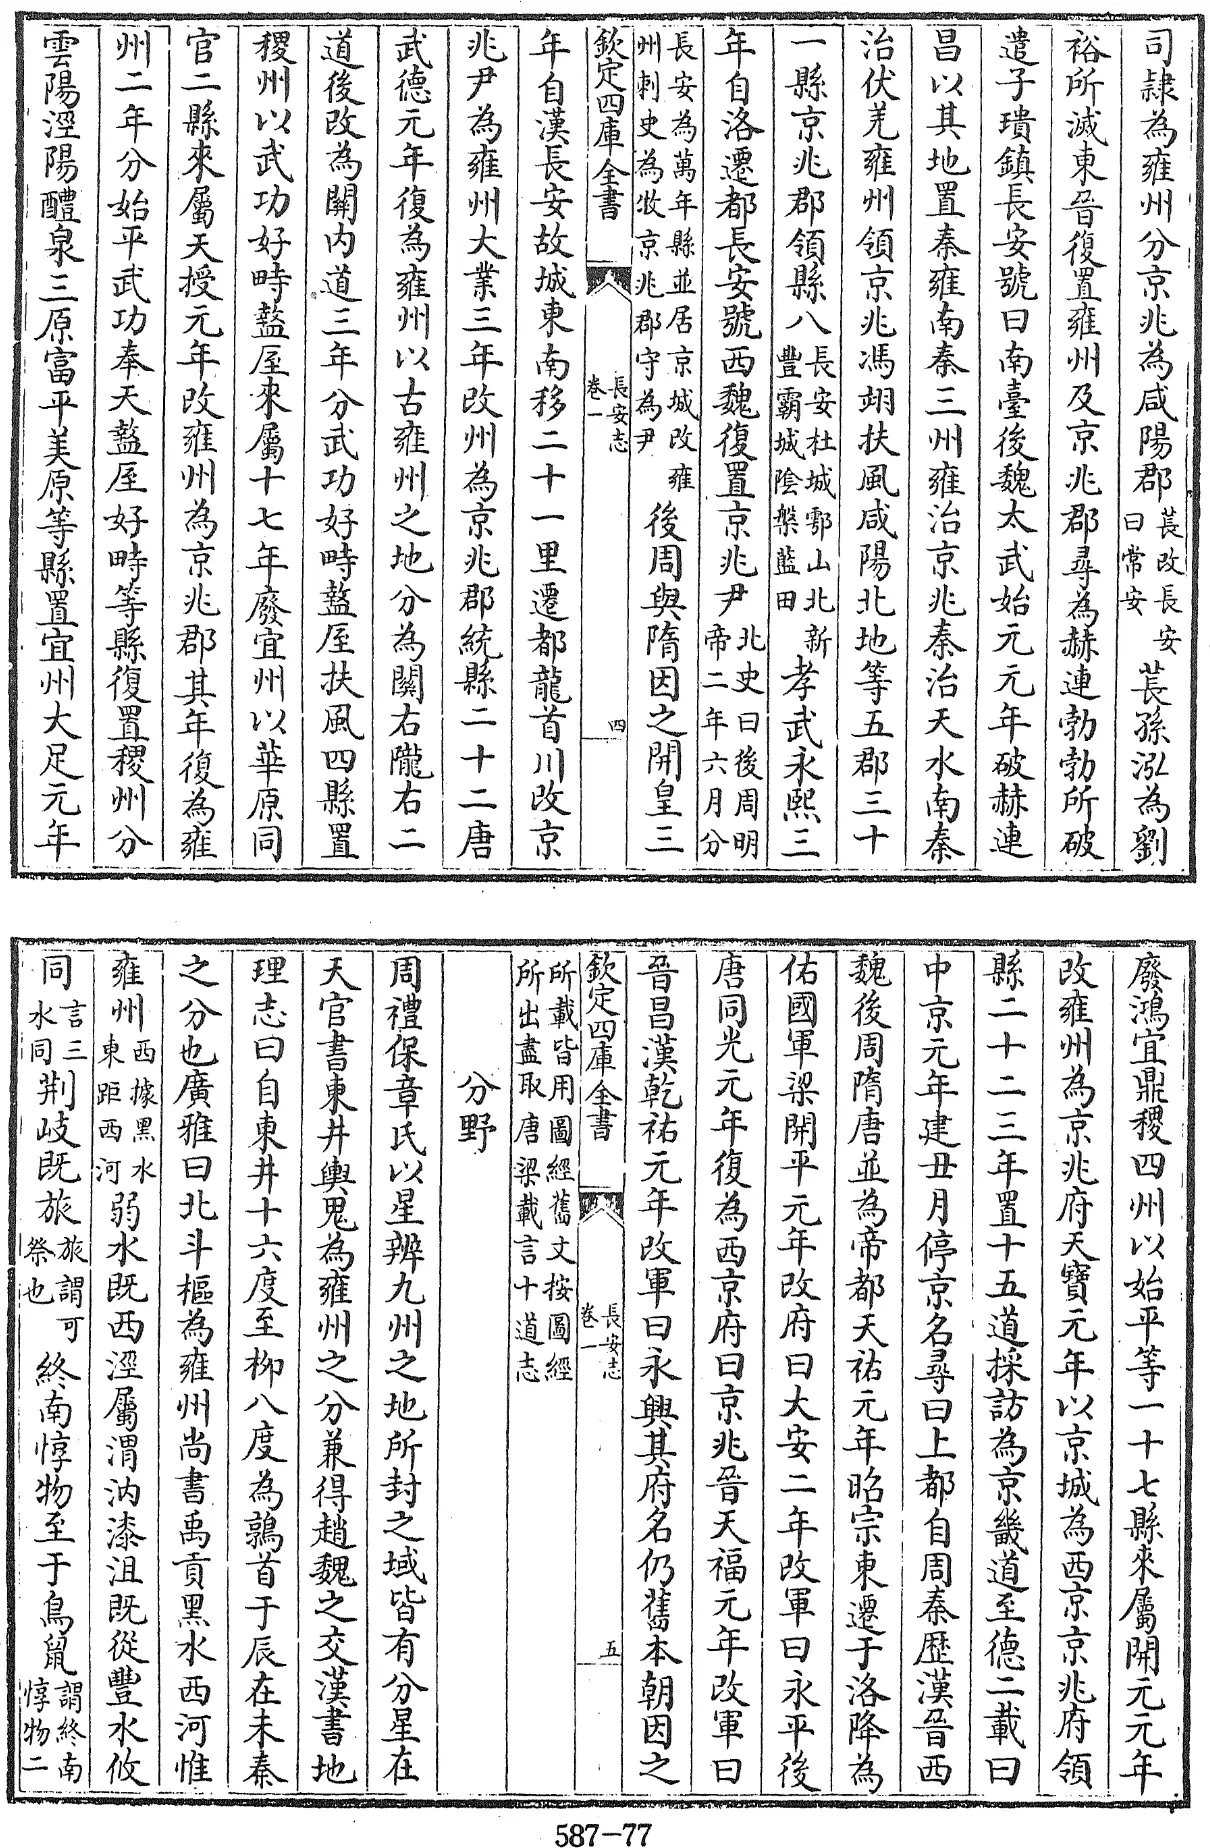 司隸為雍州分京兆為咸陽郡萇改長安曰常安萇孫泓為劉
裕所滅東晉復置雍州及京兆郡尋為赫連勃勃所破
遣子璝鎮長安號曰南臺後魏太武始元元年破赫連
昌以其地置秦雍南秦三州雍治京兆秦治天水南秦
治伏羌雍州領京兆馮翊扶風咸陽北地等五郡三十
一縣京兆郡領縣八長安杜城鄠山北新豐霸城陰槃藍田孝武永熙三
年自洛遷都長安號西魏復置京兆尹北史曰後周明帝二年六月分
長安為萬年縣並居京城改雍州刺史為牧京兆郡守為尹後周與隋因之開皇三
欽定四庫全書
長安志
卷一
四
年自漢長安故城東南移二十一里遷都龍首川改京
兆尹為雍州大業三年改州為京兆郡統縣二十二唐
武德元年復為雍州以古雍州之地分為關右隴右二
道後改為關内道三年分武功好畤盩厔扶風四縣置
稷州以武功好畤盩厔來屬十七年廢宜州以華原同
官二縣來屬天授元年改雍州為京兆郡其年復為雍
州二年分始平武功奉天盩厔好畤等縣復置稷州分
雲陽涇陽醴泉三原富平美原等縣置宜州大足元年
廢鴻宜鼎稷四州以始平等一十七縣來屬開元元年
改雍州為京兆府天寶元年以京城為西京京兆府領
縣二十二三年置十五道採訪為京畿道至德二載曰
中京元年建丑月停京名尋曰上都自周秦歷漢晉西
魏後周隋唐並為帝都天祐元年昭宗東遷于洛降為
佑國軍梁開平元年改府曰大安二年改軍曰永平後
唐同光元年復為西京府曰京兆晉天福元年改軍曰
晉昌漢乾祐元年改軍曰永興其府名仍舊本朝因之
欽定四庫全書
長安志
卷一
五
所載皆用圖經舊文按圖經所出盡取唐梁載言十道志
分野
周禮保章氏以星辨九州之地所封之域皆有分星在
天官書東井輿鬼為雍州之分兼得趙魏之交漢書地
理志曰自東井十六度至柳八度為鶉首于辰在未秦
之分也廣雅曰北斗樞為雍州尚書禹貢黑水西河惟
雍州西據黑水東距西河弱水既西涇屬渭汭漆沮既從豐水攸
同言三水同荆岐既旅旅謂可祭也終南惇物至于鳥鼠謂終南惇物二
587-77